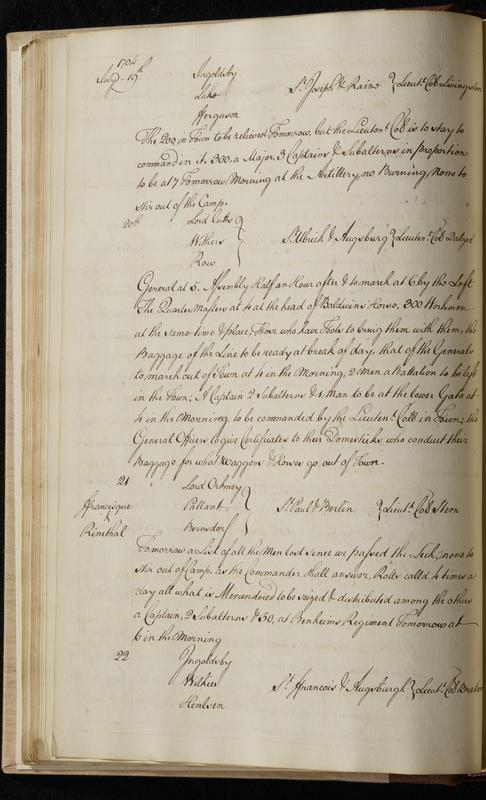 1704
July 19th Ingoldsby
Luke St Joseph & Rains } Lieutt Coll Livingston
Ferguson
The 200 in Town to be relieved Tomorrow, but the Lieutent Coll is to stay to
command in it. 300, a Major, 3 Captains & Subalterns in proportion
to be at 7 Tomorrow Morning at the Artillery, no Burning, None to
stir out of the Camp.
20th Lord Cutts
Withers } St Ulrick & Augsburg } Lieutent Coll Dalyel
Row
General at 5. Assembly Half an Hour after & to march at 6 by the Left
The Quarter Masters at 4 at the head of Baldwins Horse, 300 Workmen
at the same time & place, those who have Tools to bring them with them, the
Baggage of the Line to be ready at break of day, that of the Generals
to march out of Town at 4 in the Morning, 2 Men a Battalion to be left
in the Town; A Captain 2 Subalterns & 1 Man to be at the lower Gate at
4 in the Morning, to be commanded by the Lieutent Coll in Town; the
General Officers to give Certificates to their Domesticks who conduct their
Baggage for what Waggons & Horses go out of Town.
21 Lord Orkney
ffrancisque & Rinethal Pallant } St Paul & Berlin } Lieutt Coll Stern
Bernsdorf
Tomorrow a List of all the Men lost since we passed the Lech, none to
stir out of Camp, as the Commander shall answer, Rolls calld 4 times a
day all what is Merandered to be seized & distributed among the others
a Captain, 2 Subalterns & 50, at Benheims Regiment Tomorrow at
6 in the Morning
22 Ingoldsby
Wilkie St ffrancois & Augsburgh } Lieutt Coll
Henlsen